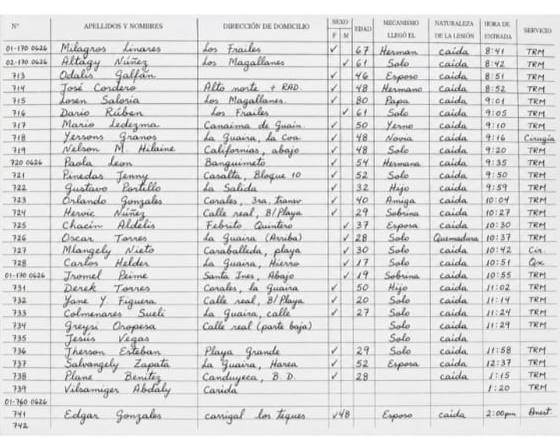 N° APELLIDOS Y NOMBRES DIRECCIÓN DE DOMICILIO SEXO F M EDAD MECANISMO LLEGÓ EL NATURALEZA DE LA LESIÓN HORA DE ENTRADA SERVICIO
01-170 0626 Milagros Linares Los Frailes ✓ 67 Herman caída 8:41 TRM
02-170 0626 Altagy Núñez Los Magallanes ✓ 61 Solo caída 8:42 TRM
713 Odalis Galfán ✓ 46 Esposo caída 8:51 TRM
714 José Cordero Alto norte + RAD. ✓ 48 Hermano caída 8:52 TRM
715 Loren Saloria Los Magallanes. ✓ 80 Papa caída 9:01 TRM
716 Dario Rúben Los Frailes ✓ 61 Solo caída 9:05 TRM
717 Mario Ledezma Canaima de Guain ✓ 50 Yerno caída 9:10 TRM
718 Yersons Granos La Guaira, La Coa. ✓ 48 Novia caída 9:16 Cirugía
719 Nelson M. Hilaine Californias, abajo ✓ 48 Solo caída 9:20 TRM
720 0626 Paola Leon Banquimeto ✓ 54 Hermana caída 9:35 TRM
721 Pinedas Jenny Casalta, Bloque 10 ✓ 52 Solo caída 9:50 TRM
722 Gustavo Portillo La Salida ✓ 32 Hijo caída 9:59 TRM
723 Orlando Gonzales Corales, 3ra, transv ✓ 40 Amiga caída 10:04 TRM
724 Hervic Núñez Calle real, B/Playa ✓ 29 Sobrina caída 10:27 TRM
725 Chacin Aldelis Febrito Quintero ✓ 37 Esposa caída 10:30 TRM
726 Oscar Torres La Guaira (Arriba) ✓ 28 Solo Quemadura 10:37 TRM
727 Mlangely Nieto Caraballeda, playa ✓ 30 Solo caída 10:42 Cir
728 Carlos Helder La Guaira, Hierro ✓ 17 Solo caída 10:51 Qx
01-170 0626 Jromel Peime Santa Ines, Abajo ✓ 19 Sobrina caída 10:55 TRM
731 Derek Torres Corales, la Guaira ✓ 50 Hijo caída 11:02 TRM
732 Yane Y. Figuera Calle real, B/Playa ✓ 20 Solo caída 11:14 TRM
733 Colmenares Sueli La Guaira, calle ✓ 27 Solo caída 11:24 TRM
734 Greysi Oropesa Calle real (parte baja) Solo caída 11:29 TRM
735 Jesús Vegas Solo caída
736 Jherson Esteban Playa Grande ✓ 29 Solo caída 11:58 TRM
737 Salvangely Zapata La Guaira, Harea ✓ 52 Esposa caída 12:37 TRM
738 Plane Benitez Canduyeca, B. D. ✓ 28 caída 1:15 TRM
739 Vilsamiger Abdaly Carida caída 1:20 TRM
01-760 0626
741 Edgar Gonzales carrigal los teques ✓ 48 Esposo caída 2:00pm Anest
742